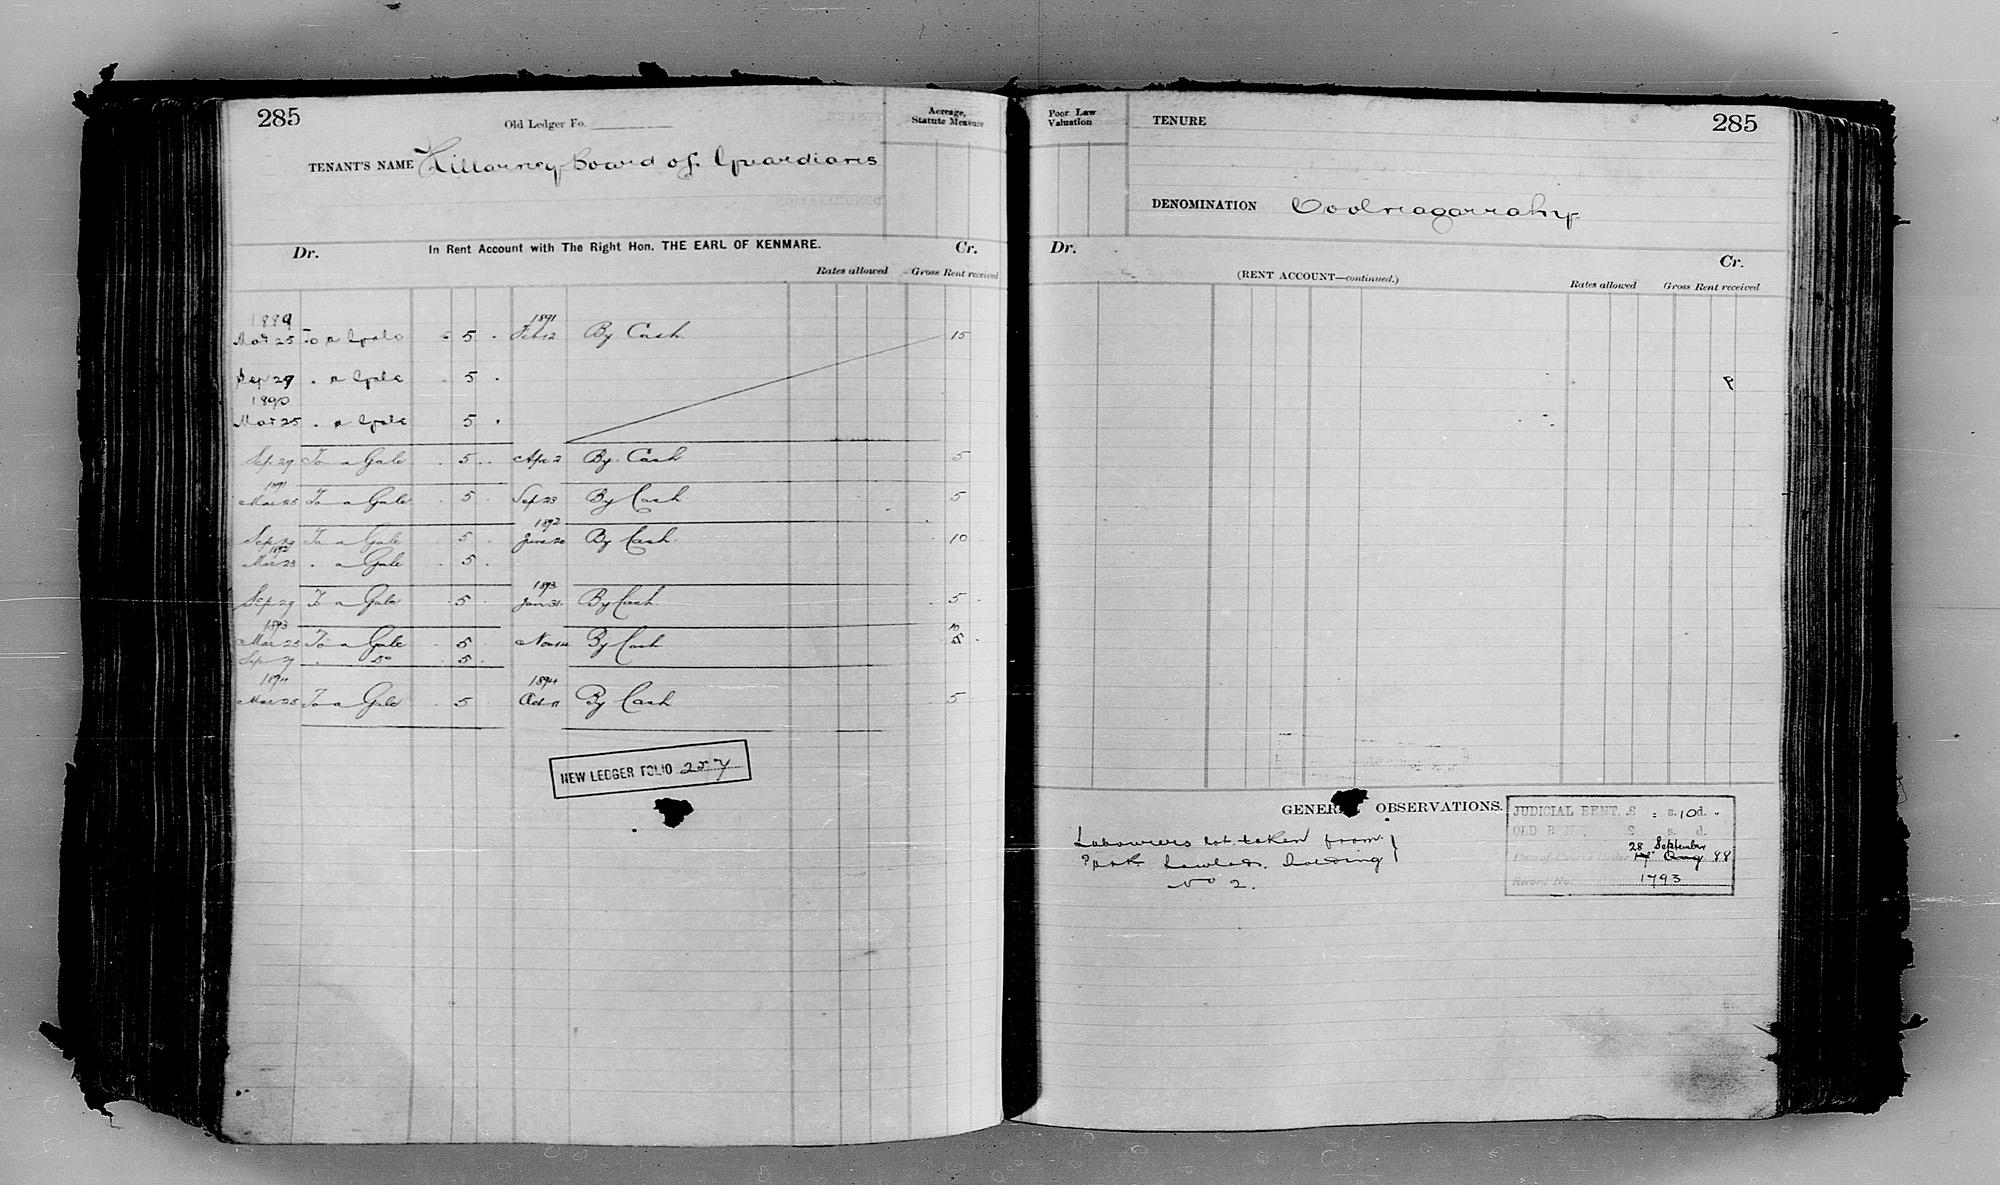 285
Old Ledger Fo.
Acreage, Statute Measure
TENANT'S NAME Killarney Board of Guardians
Dr. In Rent Account with The Right Hon. THE EARL OF KENMARE. Cr.
Rates allowed Gross Rent received
1889 1891
Mar 25 To a Gale 5 Feb 12 By Cash 15
Sep 29 . a Gale 5
1890
Mar 25 . a Gale 5
Sep 29 To a Gale 5 Apr 2 By Cash 5
1891
Mar 25 To a Gale 5 Sep 23 By Cash 5
1892
Sep 29 To a Gale 5 June 20 By Cash 10
1892
Mar 25 . a Gale 5
1893
Sep 29 To a Gale 5 Jan 31 By Cash 5
1893
Mar 25 To a Gale 5 Nov 14 By Cash 10
Sep 29 . Do 5
1894 1894
Mar 25 To a Gale 5 Oct 11 By Cash 5
NEW LEDGER FOLIO 257
Poor Law Valuation
TENURE
285
DENOMINATION Coolnagarrahy
Dr. Cr.
(RENT ACCOUNT—continued.)
Rates allowed Gross Rent received
GENERAL OBSERVATIONS.
Labourers lot taken from
Lawlors holding
No 2.
JUDICIAL RENT, £ : s. 10 d. "
OLD RENT £ s. d.
28 September
Date of Court's Order 17 Aug 88
Record No. 1793